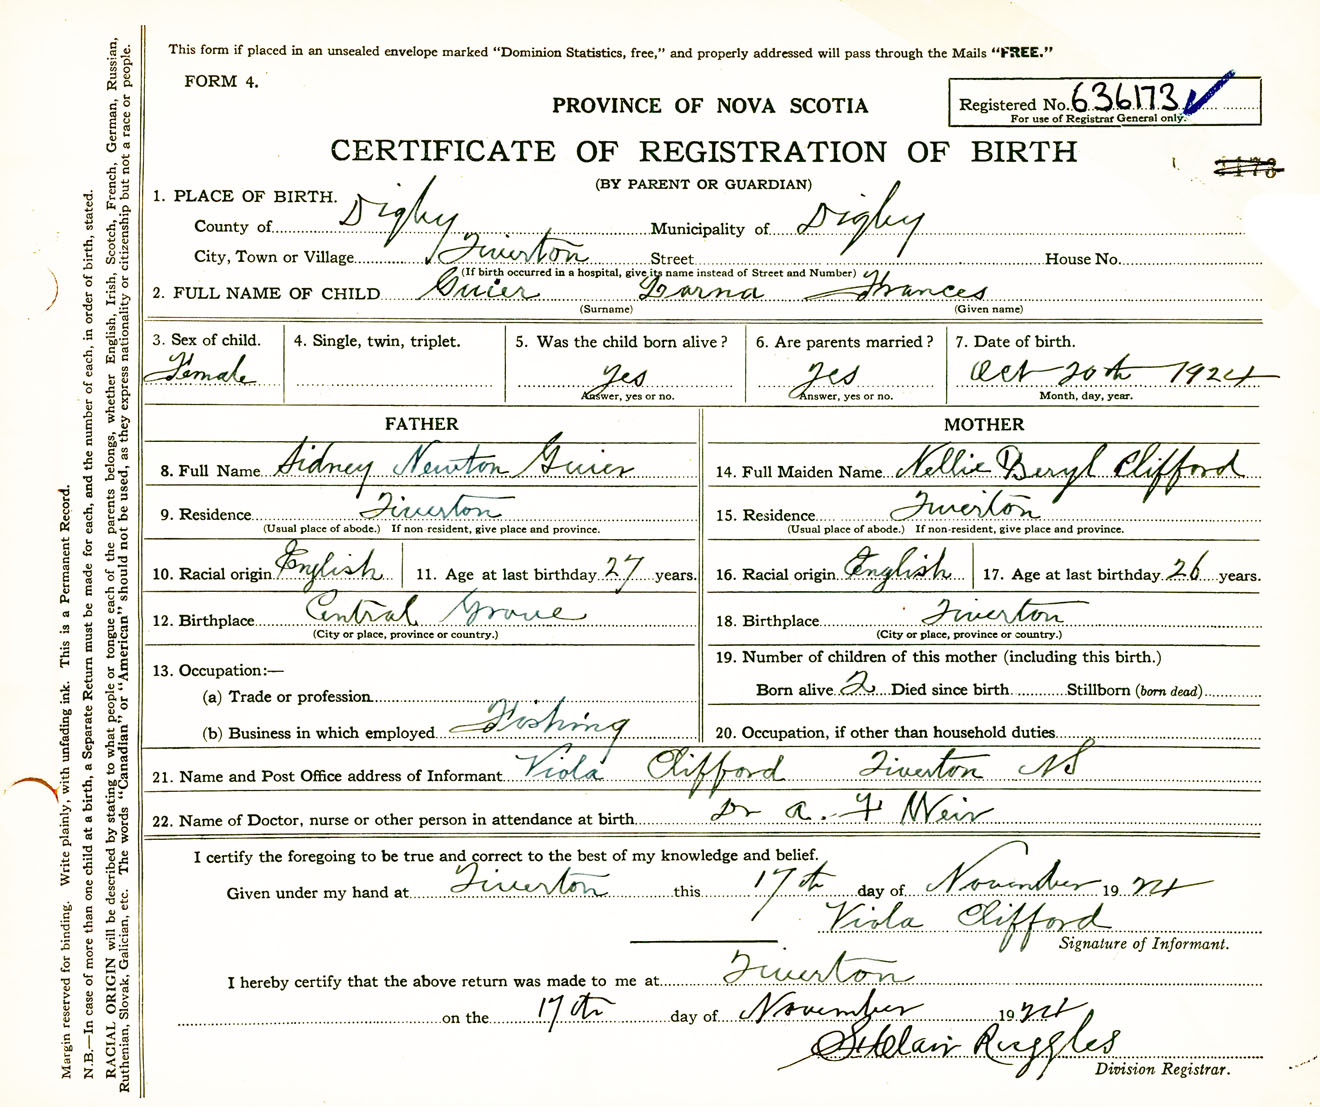 This form if placed in an unsealed envelope marked “Dominion Statistics, free,” and properly addressed will pass through the Mails “FREE.”
FORM 4.
PROVINCE OF NOVA SCOTIA
Registered No. 636173
For use of Registrar General only.
CERTIFICATE OF REGISTRATION OF BIRTH
(BY PARENT OR GUARDIAN)
1. PLACE OF BIRTH.
County of Digby Municipality of Digby
City, Town or Village Tiverton Street House No.
(If birth occurred in a hospital, give its name instead of Street and Number)
2. FULL NAME OF CHILD Guier Lorna Frances
(Surname) (Given name)
3. Sex of child. 4. Single, twin, triplet. 5. Was the child born alive? 6. Are parents married? 7. Date of birth.
Female yes yes Oct 20th 1924
Answer, yes or no. Answer, yes or no. Month, day, year.
FATHER MOTHER
8. Full Name Sidney Newton Guier 14. Full Maiden Name Nellie Beryl Clifford
9. Residence Tiverton 15. Residence Tiverton
(Usual place of abode.) If non-resident, give place and province. (Usual place of abode.) If non-resident, give place and province.
10. Racial origin English 11. Age at last birthday 27 years. 16. Racial origin English 17. Age at last birthday 26 years.
12. Birthplace Central Grove 18. Birthplace Tiverton
(City or place, province or country.) (City or place, province or country.)
13. Occupation:— 19. Number of children of this mother (including this birth.)
(a) Trade or profession Born alive 2 Died since birth Stillborn (born dead)
(b) Business in which employed Fishing 20. Occupation, if other than household duties
21. Name and Post Office address of Informant Viola Clifford Tiverton NS
22. Name of Doctor, nurse or other person in attendance at birth Dr A. F Weir
I certify the foregoing to be true and correct to the best of my knowledge and belief.
Given under my hand at Tiverton this 17th day of November 1924
Viola Clifford
Signature of Informant.
I hereby certify that the above return was made to me at Tiverton
on the 17th day of November 1924
StClair Ruggles
Division Registrar.
Margin reserved for binding. Write plainly, with unfading ink. This is a Permanent Record.
N.B.—In case of more than one child at a birth, a Separate Return must be made for each, and the number of each, in order of birth, stated.
RACIAL ORIGIN will be described by stating to what people or tongue each of the parents belongs, whether English, Irish, Scotch, French, German, Russian,
Ruthenian, Slovak, Galician, etc. The words “Canadian” or “American” should not be used, as they express nationality or citizenship but not a race or people.